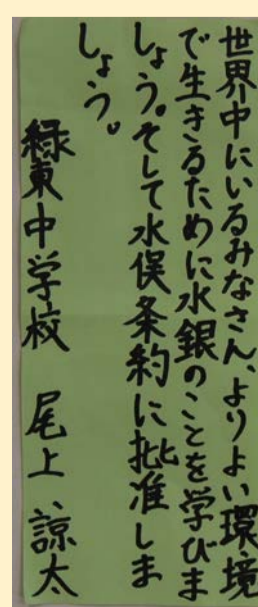 世界中にいるみなさん、よりよい環境
で生きるために水銀のことを学びま
しょう。そして水俣条約に批准しま
しょう。
緑東中学校 尾上 諒太